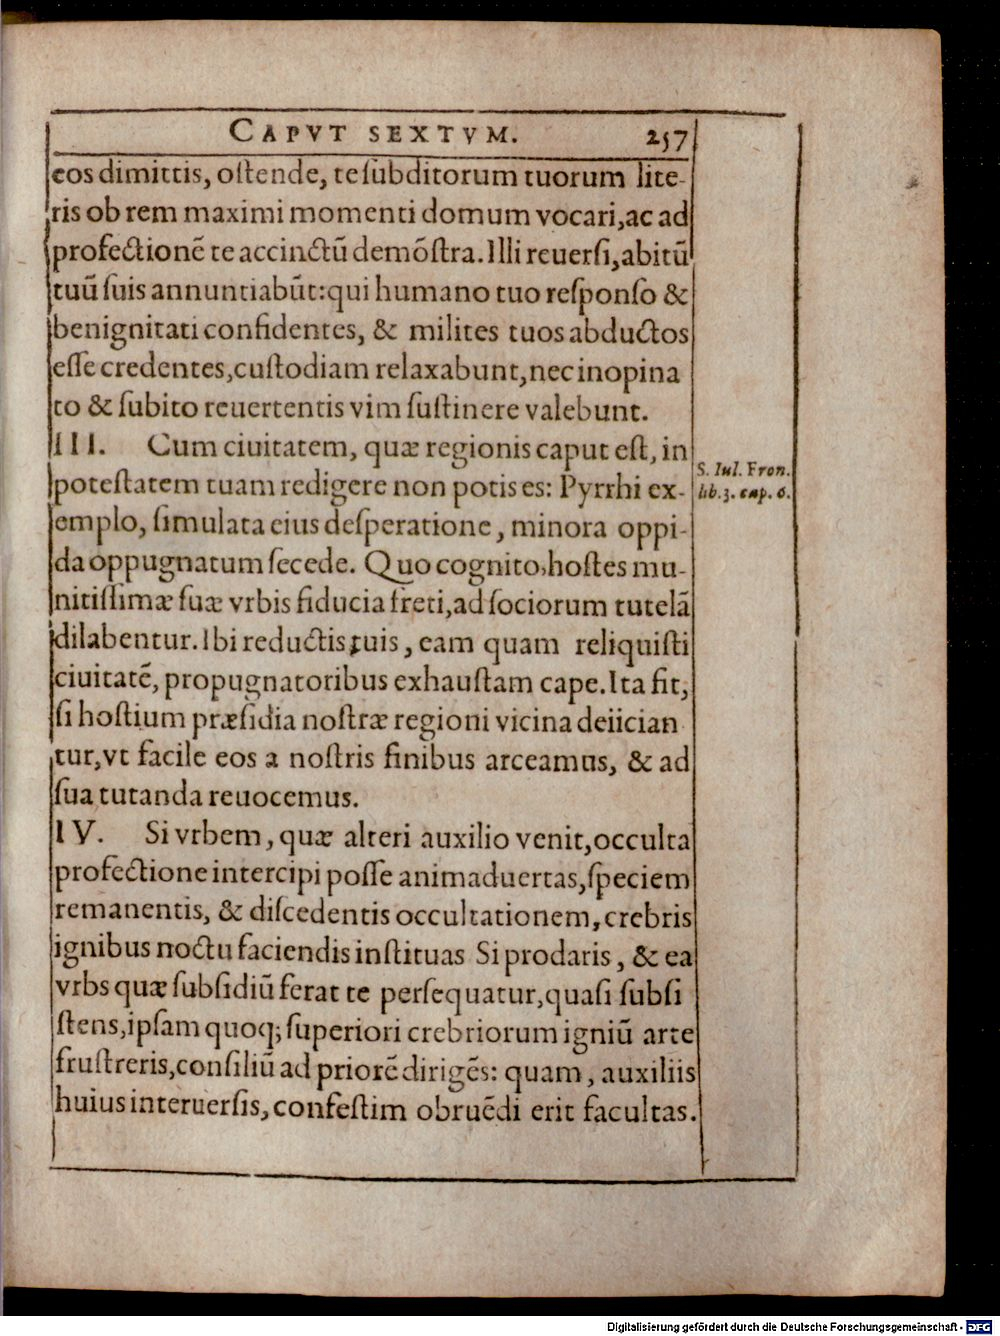 CAPVT SEXTVM. 257
eos dimittis, oſtende, te ſubditorum tuorum lite-
ris ob rem maximi momenti domum vocari, ac ad
profectionē te accinctū demōſtra. Illi reuerſi, abitū
tuū ſuis annuntiabūt: qui humano tuo reſponſo &
benignitati confidentes, & milites tuos abductos
eſſe credentes, cuſtodiam relaxabunt, nec inopina
to & ſubito reuertentis vim ſuſtinere valebunt.
III. Cum ciuitatem, quæ regionis caput eſt, in
poteſtatem tuam redigere non potis es: Pyrrhi ex-
emplo, ſimulata eius deſperatione, minora oppi-
da oppugnatum ſecede. Quo cognito, hoſtes mu-
nitiſſimæ ſuæ vrbis fiducia freti, ad ſociorum tutelā
dilabentur. Ibi reductis tuis, eam quam reliquiſti
ciuitatē, propugnatoribus exhauſtam cape. Ita fit,
ſi hoſtium præſidia noſtræ regioni vicina deiician
tur, vt facile eos a noſtris finibus arceamus, & ad
ſua tutanda reuocemus.
S. Iul. Fron.
lib. 3. cap. 6.
IV. Si vrbem, quæ alteri auxilio venit, occulta
profectione intercipi poſſe animaduertas, ſpeciem
remanentis, & diſcedentis occultationem, crebris
ignibus noctu faciendis inſtituas Si prodaris, & ea
vrbs quæ ſubſidiū ferat te perſequatur, quaſi ſubſi
ſtens, ipſam quoq; ſuperiori crebriorum igniū arte
fruſtreris, conſiliū ad priorē dirigēs: quam, auxiliis
huius interuerſis, confeſtim obruēdi erit facultas.
Digitalisierung gefördert durch die Deutsche Forschungsgemeinschaft - DFG